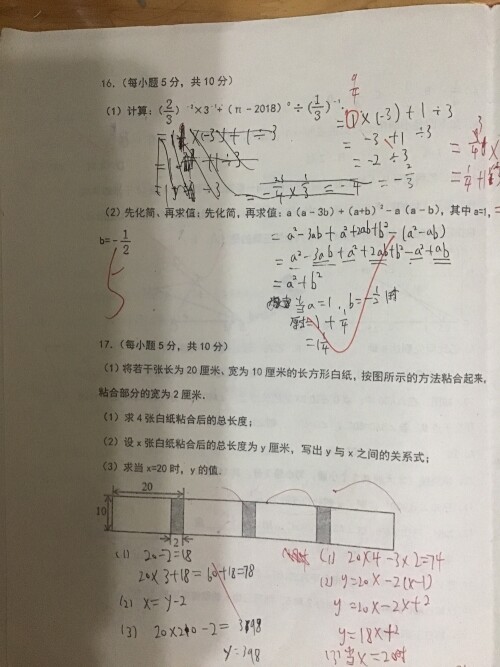 16.（每小题5分，共10分）
（1）计算：(2/3)⁻²×3⁻¹+(π-2018)⁰÷(1/3)⁻¹.
9/4
=1×(-3)+1÷3
=-3+1÷3
=-2÷3
=-2/3
（2）先化简、再求值：先化简，再求值：a（a-3b）+（a+b）²-a（a-b），其中a=1，
b=-1/2
=a²-3ab+a²+2ab+b²-(a²-ab)
=a²-3ab+a²+2ab+b²-a²+ab
=a²+b²
当a=1，b=-1/2时
原式=1+1/4
=1 1/4
5
17.（每小题5分，共10分）
（1）将若干张长为20厘米、宽为10厘米的长方形白纸，按图所示的方法粘合起来，
粘合部分的宽为2厘米.
（1）求4张白纸粘合后的总长度；
（2）设x张白纸粘合后的总长度为y厘米，写出y与x之间的关系式；
（3）求当x=20时，y的值.
20
10
2
(1) 20-2=18
20×3+18=60+18=78
(2) x=y-2
(3) 20×20-2=398
y=398
(1) 20×4-3×2=74
(2) y=20x-2(x-1)
y=20x-2x+2
y=18x+2
(3)当x=20时